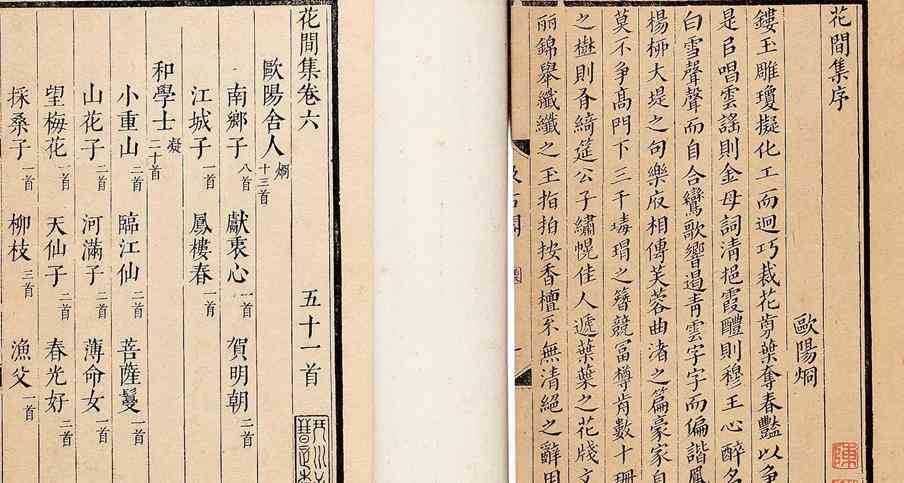 花間集序
歐陽炯
鏤玉雕瓊擬化工而迥巧裁花剪葉奪春豔以争
是㠯唱雲謠則金母詞清挹霞醴則穆王心醉名
白雪聲聲而自合鸞歌響遏青雲字字而偏諧鳳
楊柳大堤之句樂府相傳芙蓉曲渚之篇豪家自
莫不争高門下三千瑇瑁之簪競冨樽前數十珊
之樹則有綺筵公子繡幌佳人遞葉葉之花牋文
丽錦舉纖纖之玉指拍按香檀不無清絕之辭用
陳
花間集卷六 五十一首
歐陽舍人炯十三首
南鄉子八首 獻衷心一首 賀明朝二首
江城子一首 鳳樓春一首
和學士凝二十首
小重山二首 臨江仙二首 菩薩蠻一首
山花子二首 河滿子二首 薄命女一首
望梅花一首 天仙子二首 春光好二首
採桑子一首 柳枝三首 漁父一首